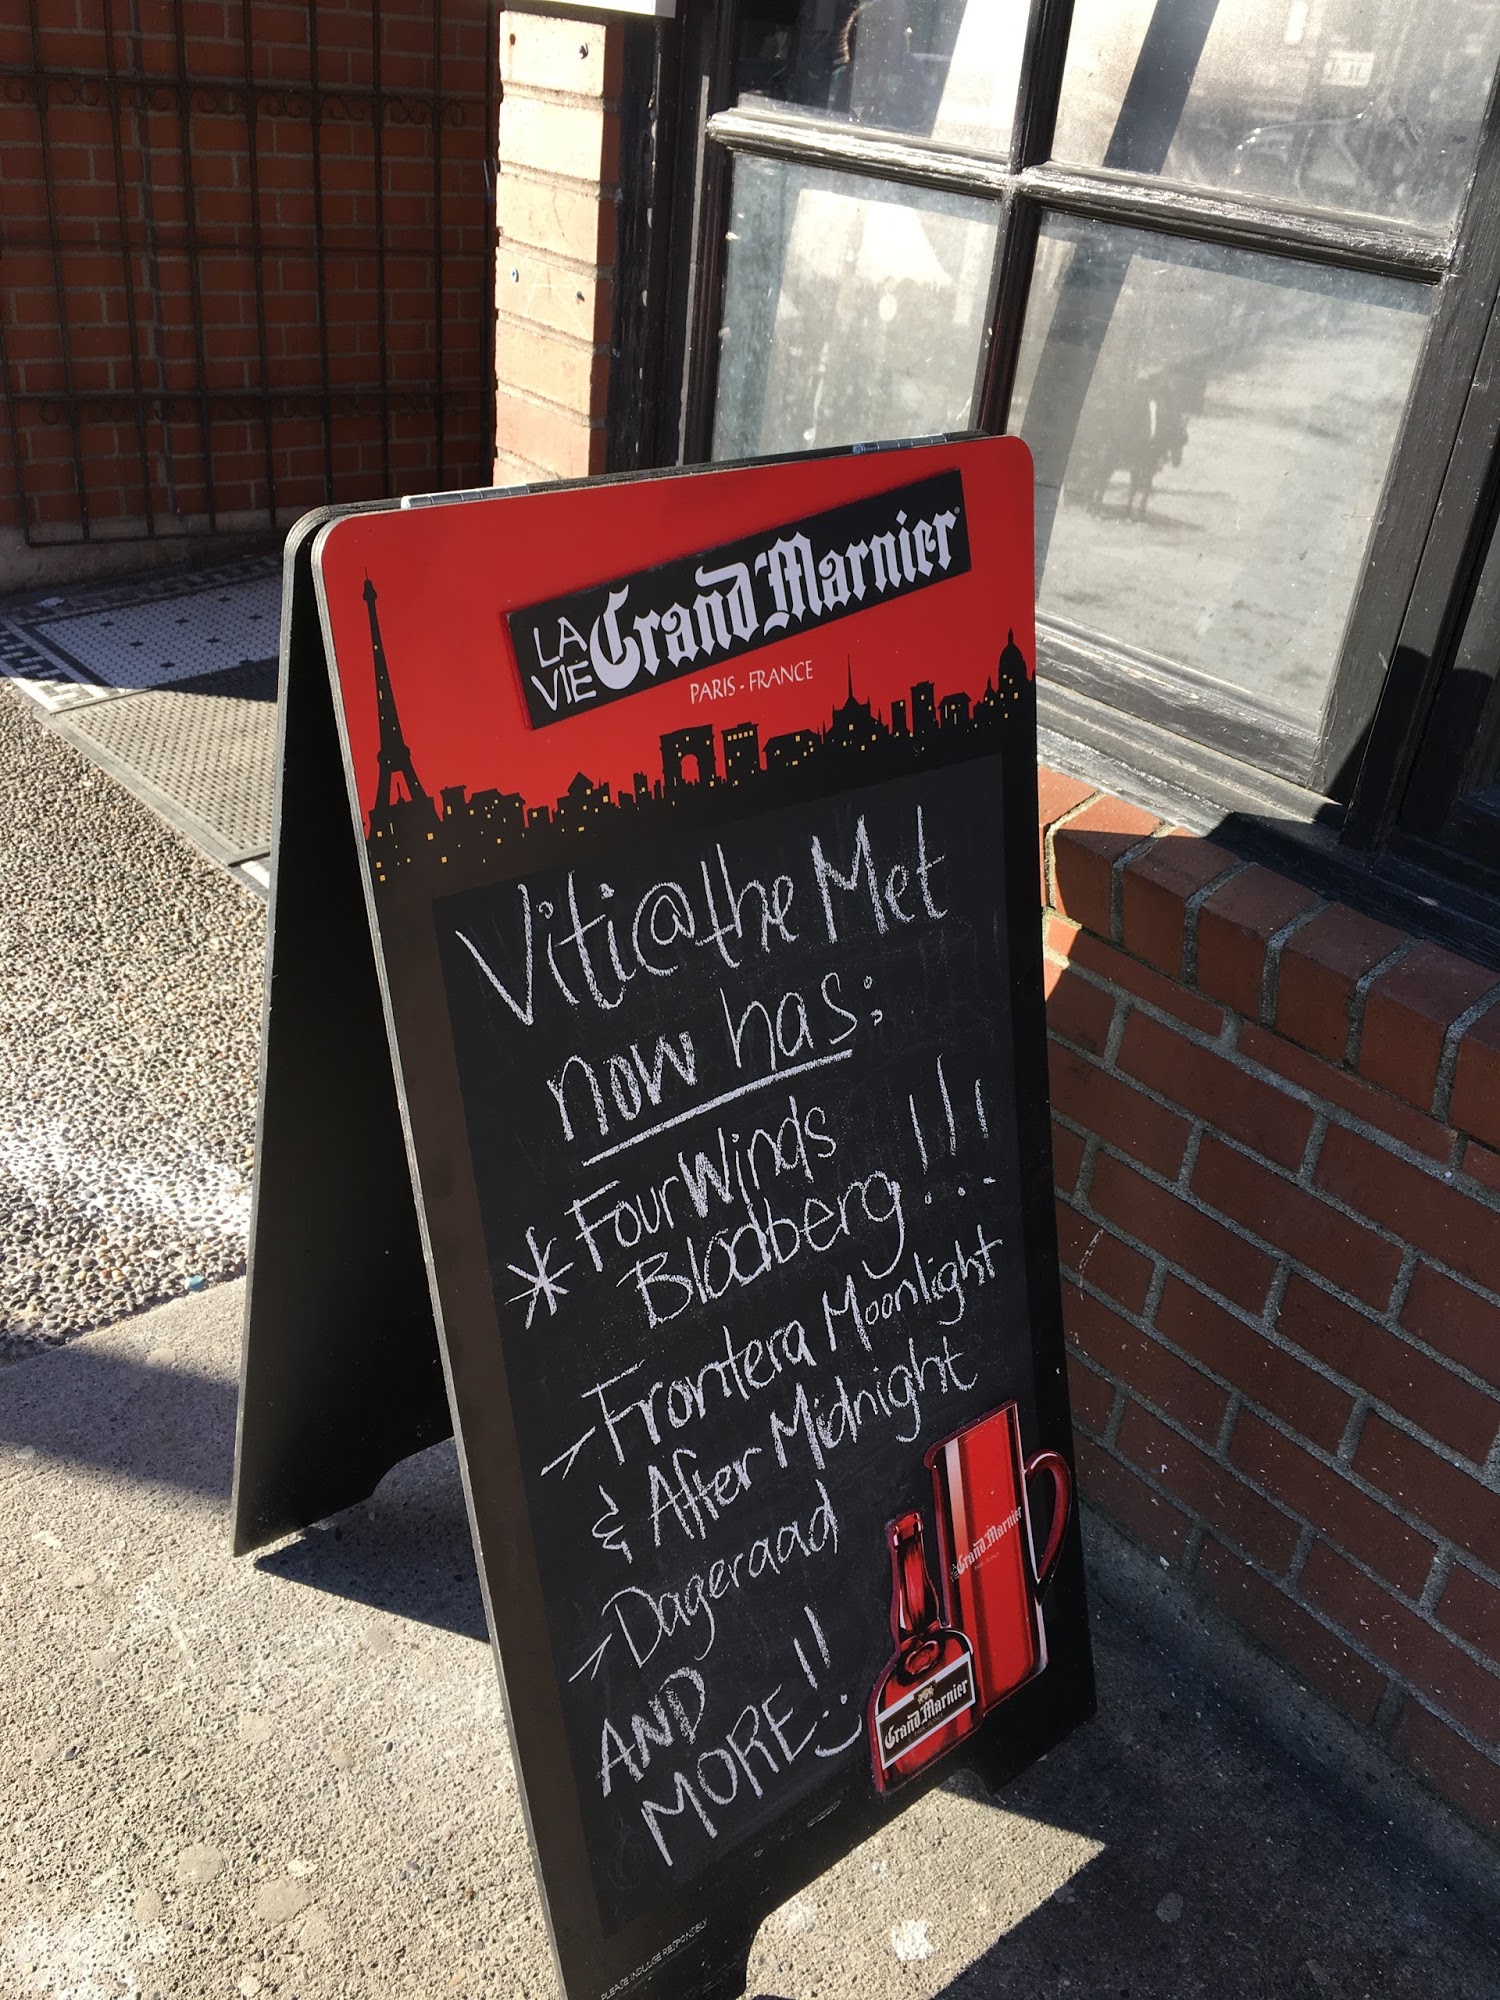 LA VIE Grand Marnier
PARIS - FRANCE
Viti@the Met
now has:
* Four Winds
Blodberg!!!
- Frontera Moonlight
& After Midnight
- Dageraad
AND
MORE!!
Grand Marnier
Grand Marnier
PLEASE INDULGE RESPONSIBLY